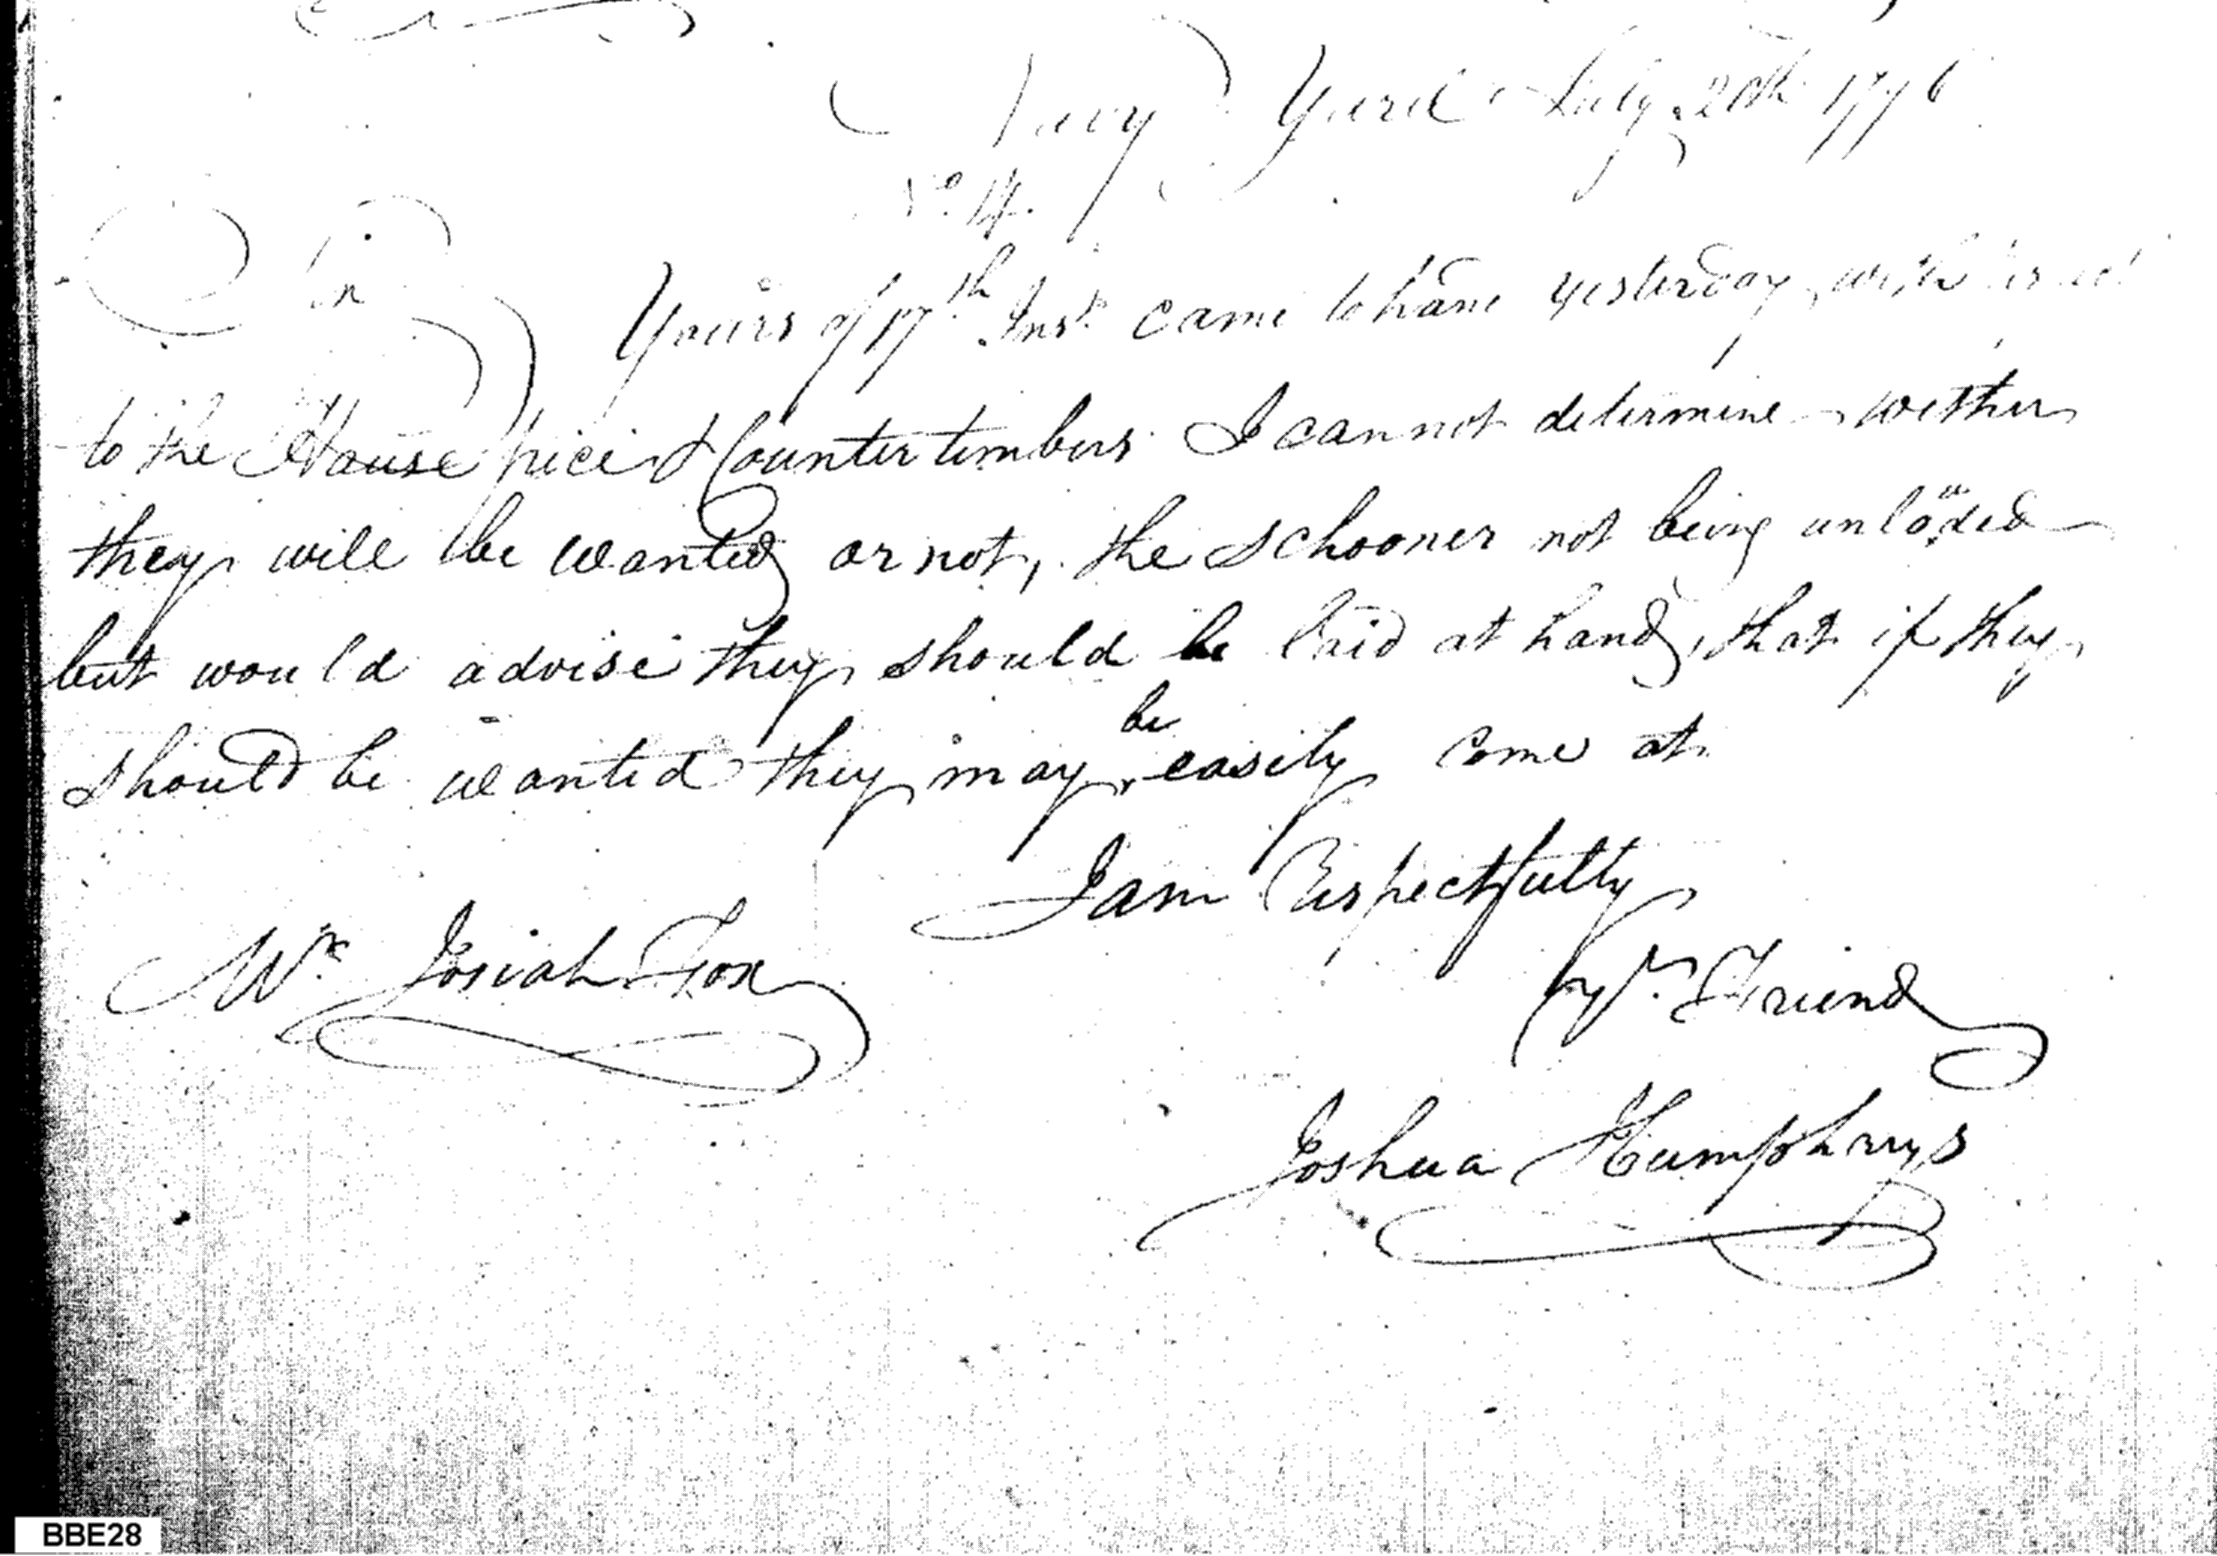 Navy Yard July 20th 1796
No. 14.
Sir
Yours of 17th Inst. came to hand yesterday, with
to the Hause piece & Counter timbers I cannot determine wether
they will be wanted or not, the schooner not being unloaded
but would advise they should be laid at hand, that if they
should be wanted they may be easily come at
I am Respectfully
Mr. Josiah Fox
yr. Friend
Joshua Humphreys
BBE28